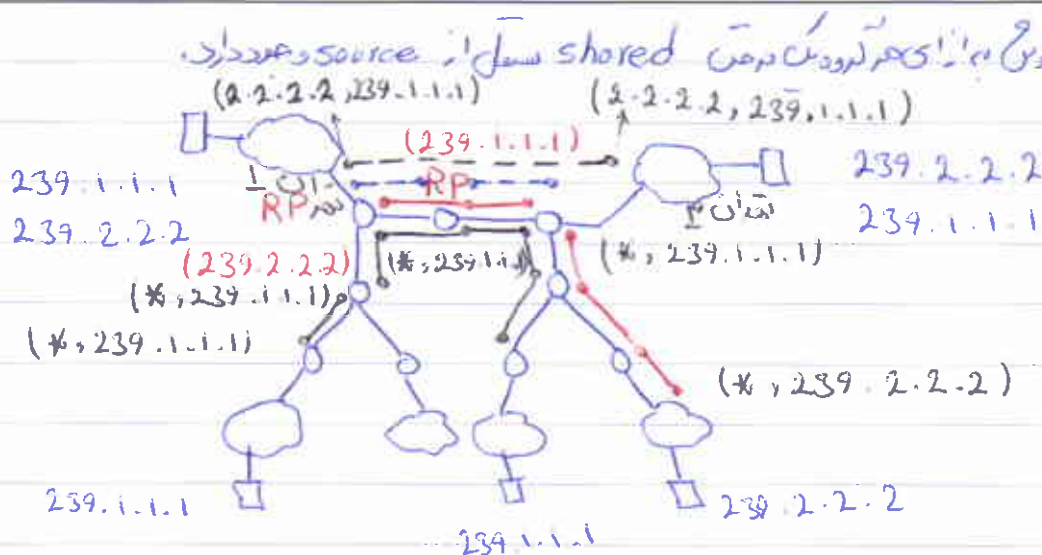 به ازای هر گروه یک درخت shared مستقل از source وجود دارد.
(2.2.2.2, 239.1.1.1)
(2.2.2.2, 239.1.1.1)
(239.1.1.1)
239.1.1.1
239.2.2.2
RP
RP
239.2.2.2
239.1.1.1
(239.2.2.2)
(*, 239.1.1.1)
(*, 239.1.1.1)
(*, 239.1.1.1)
(*, 239.1.1.1)
(*, 239.2.2.2)
239.1.1.1
239.1.1.1
239.2.2.2